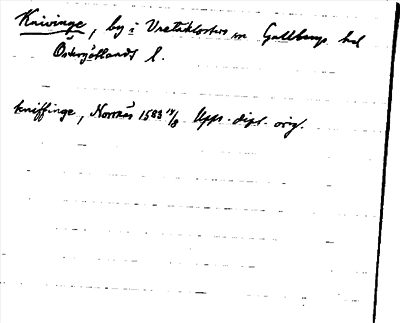 Knivinge, by i Vreta klosters sn Gullbergs hd
Östergötlands l.
kniffinge, Norrnäs 1583 14/8 Upps. dipl. orig.